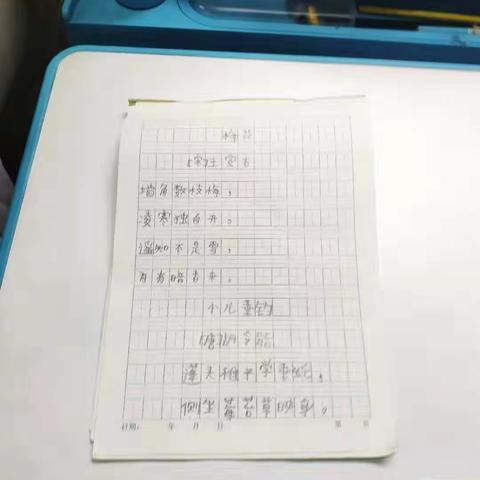 梅花
(宋)王安石
墙角数枝梅，
凌寒独自开。
遥知不是雪，
为有暗香来。
小儿垂钓
(唐)胡令能
蓬头稚子学垂纶，
侧坐莓苔草映身。
日期： 年 月 日 第 页